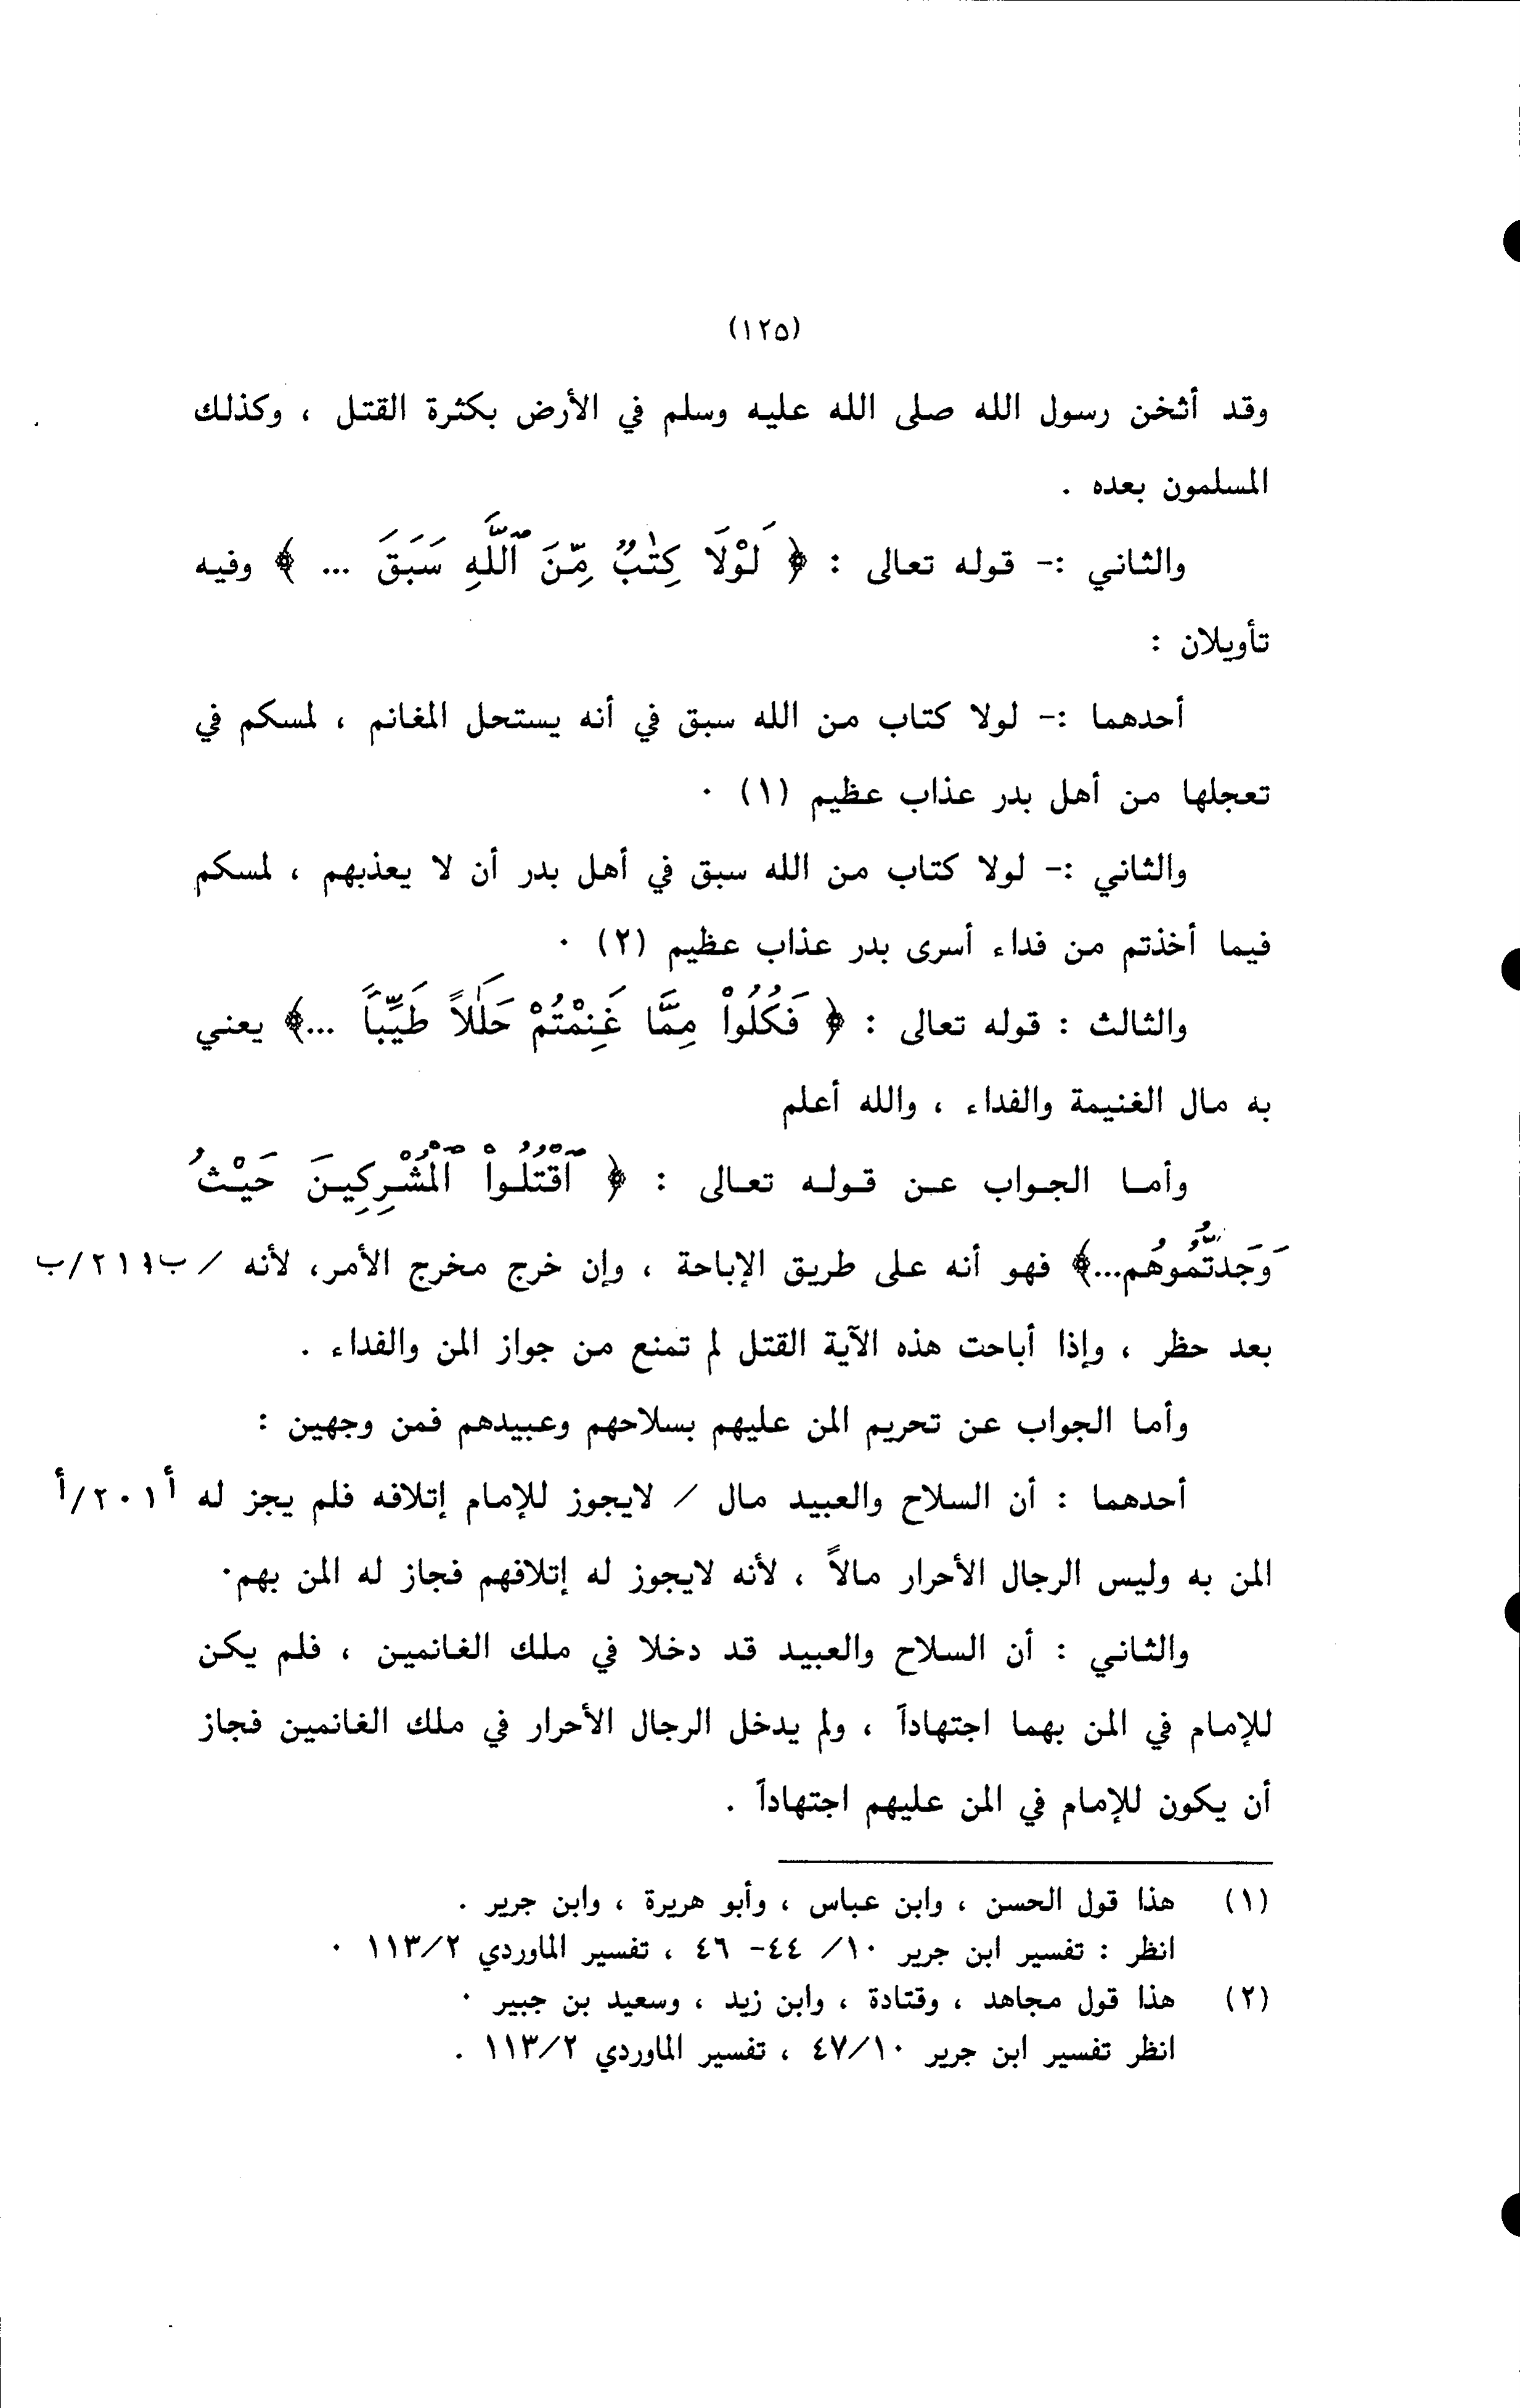 (١٢٥)
وقد أثخن رسول الله صلى الله عليه وسلم في الأرض بكثرة القتل ، وكذلك
المسلمون بعده .
والثاني :- قوله تعالى : ﴿ لَوْلَا كِتَٰبٌ مِّنَ ٱللَّهِ سَبَقَ ... ﴾ وفيه
تأويلان :
أحدهما :- لولا كتاب من الله سبق في أنه يستحل المغانم ، لمسكم في
تعجلها من أهل بدر عذاب عظيم (١) .
والثاني :- لولا كتاب من الله سبق في أهل بدر أن لا يعذبهم ، لمسكم
فيما أخذتم من فداء أسرى بدر عذاب عظيم (٢) .
والثالث : قوله تعالى : ﴿ فَكُلُوا۟ مِمَّا غَنِمْتُمْ حَلَٰلًا طَيِّبًا ...﴾ يعني
به مال الغنيمة والفداء ، والله أعلم
وأما الجواب عن قوله تعالى : ﴿ ٱقْتُلُوا۟ ٱلْمُشْرِكِينَ حَيْثُ
وَجَدتُّمُوهُم...﴾ فهو أنه على طريق الإباحة ، وإن خرج مخرج الأمر، لأنه /
بعد حظر ، وإذا أباحت هذه الآية القتل لم تمنع من جواز المن والفداء .
وأما الجواب عن تحريم المن عليهم بسلاحهم وعبيدهم فمن وجهين :
أحدهما : أن السلاح والعبيد مال / لايجوز للإمام إتلافه فلم يجز له أ٢٠١/أ
المن به وليس الرجال الأحرار مالاً ، لأنه لايجوز له إتلافهم فجاز له المن بهم.
والثاني : أن السلاح والعبيد قد دخلا في ملك الغانمين ، فلم يكن
للإمام في المن بهما اجتهاداً ، ولم يدخل الرجال الأحرار في ملك الغانمين فجاز
أن يكون للإمام في المن عليهم اجتهاداً .
(١) هذا قول الحسن ، وابن عباس ، وأبو هريرة ، وابن جرير .
انظر : تفسير ابن جرير ١٠/ ٤٤- ٤٦ ، تفسير الماوردي ١١٣/٢ .
(٢) هذا قول مجاهد ، وقتادة ، وابن زيد ، وسعيد بن جبير .
انظر تفسير ابن جرير ٤٧/١٠ ، تفسير الماوردي ١١٣/٢ .